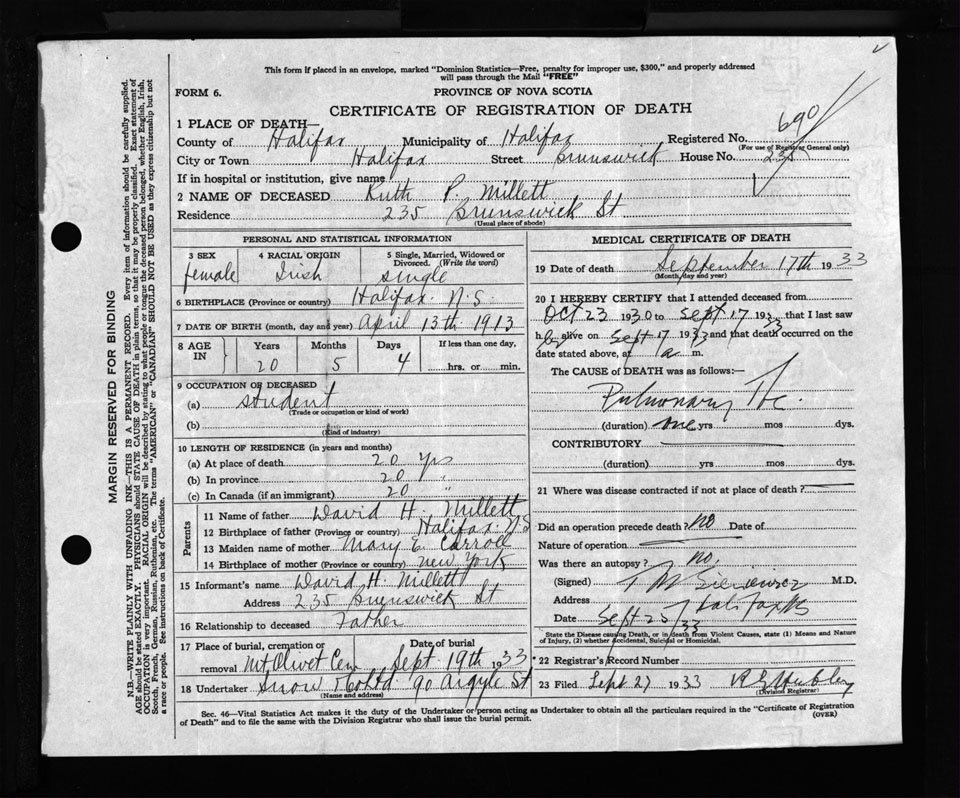 This form if placed in an envelope, marked "Dominion Statistics—Free, penalty for improper use, $300," and properly addressed
will pass through the Mail "FREE"
FORM 6.
PROVINCE OF NOVA SCOTIA
CERTIFICATE OF REGISTRATION OF DEATH
690
1 PLACE OF DEATH—
County of Halifax Municipality of Halifax Registered No.
(For use of Registrar General only)
City or Town Halifax Street Brunswick House No. 235
If in hospital or institution, give name
2 NAME OF DECEASED Ruth P. Millett
Residence 235 Brunswick St
(Usual place of abode)
PERSONAL AND STATISTICAL INFORMATION
3 SEX 4 RACIAL ORIGIN 5 Single, Married, Widowed or
Divorced. (Write the word)
female Irish single
6 BIRTHPLACE (Province or country) Halifax. N.S.
7 DATE OF BIRTH (month, day and year) April 13th 1913
8 AGE IN Years Months Days If less than one day,
20 5 4 hrs. or min.
9 OCCUPATION OF DECEASED
(a) student
(Trade or occupation or kind of work)
(b)
(Kind of industry)
10 LENGTH OF RESIDENCE (in years and months)
(a) At place of death 20 Yrs
(b) In province 20 "
(c) In Canada (if an immigrant) 20 "
Parents
11 Name of father David H. Millett
12 Birthplace of father (Province or country) Halifax. N.S
13 Maiden name of mother Mary E. Carroll
14 Birthplace of mother (Province or country) New York
15 Informant's name David H. Millett
Address 235 Brunswick St
16 Relationship to deceased Father
17 Place of burial, cremation or Date of burial
removal Mt Olivet Cem Sept. 19th 1933
18 Undertaker Snow & Co Ltd 90 Argyle St
(Name and address)
MEDICAL CERTIFICATE OF DEATH
19 Date of death September 17th 1933
(Month, day and year)
20 I HEREBY CERTIFY that I attended deceased from
Oct 23 1930 to Sept 17 1933 that I last saw
her alive on Sept 17 1933 and that death occurred on the
date stated above, at 1 a m.
The CAUSE of DEATH was as follows:—
Pulmonary Tbc.
(duration) one yrs mos dys.
CONTRIBUTORY
(duration) yrs mos dys.
21 Where was disease contracted if not at place of death?
Did an operation precede death? no Date of
Nature of operation
Was there an autopsy? no.
(Signed) M.D.
Address Halifax NS
Date Sept 25/33
State the Disease causing Death, or in death from Violent Causes, state (1) Means and Nature
of Injury, (2) whether Accidental, Suicidal or Homicidal.
22 Registrar's Record Number
23 Filed Sept 27 1933
(Division Registrar)
Sec. 46—Vital Statistics Act makes it the duty of the Undertaker or person acting as Undertaker to obtain all the particulars required in the "Certificate of Registration
of Death" and to file the same with the Division Registrar who shall issue the burial permit. (OVER)
MARGIN RESERVED FOR BINDING
N.B.—WRITE PLAINLY WITH UNFADING INK—THIS IS A PERMANENT RECORD. Every item of information should be carefully supplied.
AGE should be stated EXACTLY. PHYSICIANS should STATE CAUSE OF DEATH in plain terms, so that it may be properly classified. Exact statement of
OCCUPATION is very important. RACIAL ORIGIN will be described by stating to what people or tongue the deceased person belonged, whether English, Irish,
Scotch, French, German, Russian, Ruthenian, etc. The terms "AMERICAN" or "CANADIAN" SHOULD NOT BE USED as they express citizenship but not
a race or people. See instructions on back of Certificate.